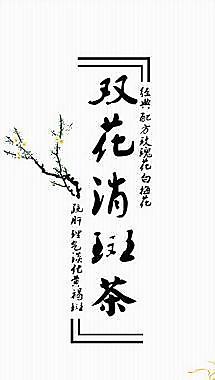 双花消斑茶
经典配方玫瑰花白梅花
疏肝理气淡化黄褐斑